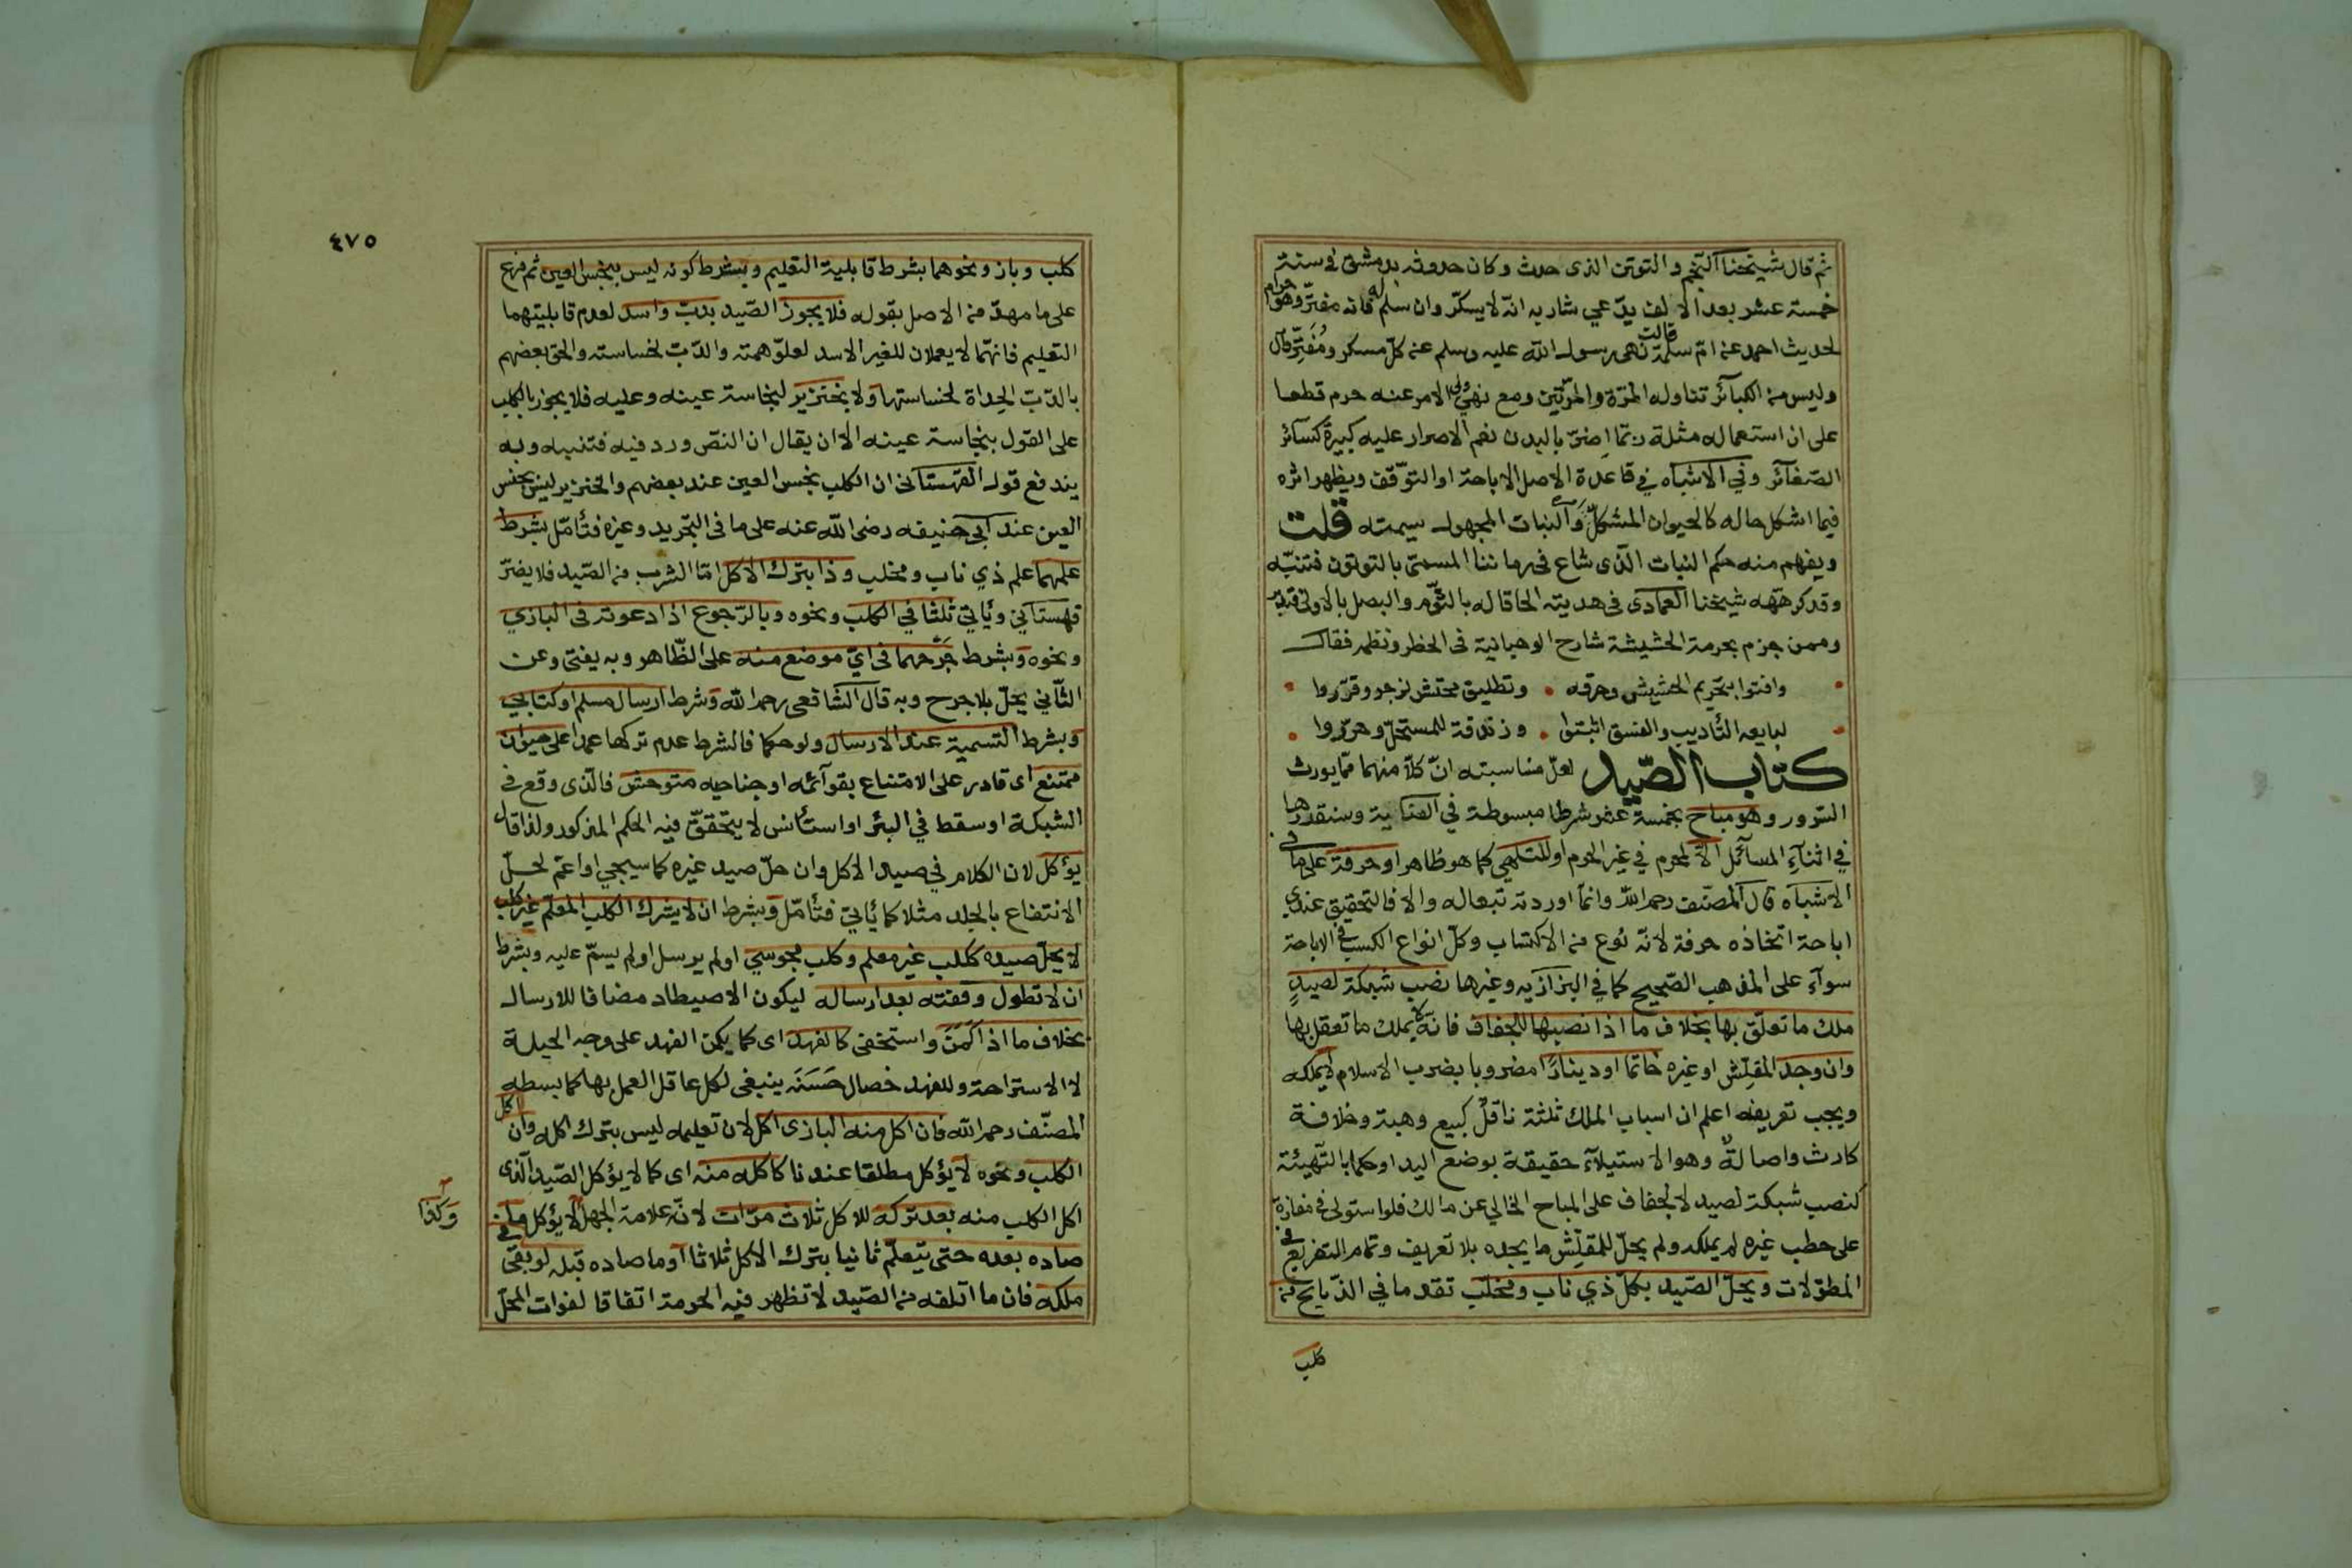 ثم قال شيخنا النجم والتوتن الذى حدث وكان حدوثه بدمشق في سنة
خمسة عشر بعد الالف يدّعي شاربه انّه لا يسكّر وان سلم له فانه مفترّ وهو حرام
لحديث احمد عن امّ سلمة قالت نهى رسول الله عليه وسلم عن كلّ مسكر ومُفَتِّر قال
وليس من الكبآئر تناوله المرّة والمرّتين ومع نهى ولى الامر عنه حرم قطعا
على ان استعماله مثله ربّما اضرّ بالبدن نعم الاصرار عليه كبيرة كسائر
الصّغآئر وفي الاشباه في قاعدة الاصل الاباحة او التوّقف ويظهر اثره
فيما اشكل حاله كالحيوان المشكل والنبات المجهول سيمته قلت
ويفهم منه حكم النبات الّذى شاع فى زماننا المسمّى بالتوتون فتنبّه
وقد كرهه شيخنا العمادى فى هديته الحاقا له بالثّوم والبصل بالاولى فتدبر
وممن جزم بحرمة الحشيشة شارح الوهبانية فى الحظر ونظمه فقال
وافتوا بتحريم الحشيش وحرقه • وتطليق محتش لزجر وقرّروا
لبايعه التأديب والفسق اثبتوا • وزندقة للمستحلّ وحرّروا
كتاب الصّيد لعلّ مناسبته انّ كلّا منهما ممّا يورث
السّرور وهو مباح بخمسة عشر شرطا مبسوطة في العناية وسنقررها
في اثنآء المسآئل الّا لمحرم في غير المحرم او للتلهي كما هو ظاهر او حرفة على ما فى
الاشباه قال المصنّف رحمه الله وانما اوردته تبعا له والا فالتحقيق عندى
اباحة اتخاذه حرفة لانّه نوع من الاكتساب وكلّ انواع الكسب فى الاباحة
سوآء على المذهب الصّحيح كما في البزازيه وغيرها نصب شبكة لصيدٍ
ملك ما تعلّق بها بخلاف ما اذا نصبها للجفاف فانّه لا يملك ما تعقل بها
وان وجد المقلّش او غيره خاتما او دينارًا مضروبا بضرب الاسلام لا يملكه
ويجب تعريفه اعلم ان اسباب الملك ثلثة ناقل كبيع وهبة وخلافة
كارث واصالةٌ وهو الاستيلآء حقيقة بوضع اليد او حكما بالتّهيئة
كنصب شبكة لصيد لا لجفاف على المباح الخالي عن مالك فلو استولى في مفازة
على حطب غيره لم يملكه ولم يحلّ للمقلّش ما يجده بلا تعريف وتمام التفريع في
المطوّلات ويحلّ الصّيد بكلّ ذي ناب ومخلب تقدما في الذّبايح من
كلب
٤٧٥
كلب وباز ونحوهما بشرط قابلية التعليم وبشرط كونه ليس بنجس العين ثم فرع
على ما مهدّ من الاصل بقوله فلا يجوز الصّيد بدبّ واسد لعدم قابليتهما
التعليم فانهّما لا يعملان للغير الاسد لعلوّ همته والدّبّ لخساسته والحق بعضهم
بالدّبّ الحِداة لخساستها ولا بخنزير لنجاسة عينه وعليه فلا يجوز بالكلب
على القول بنجاسة عينه الا ان يقال ان النصّ ورد فيه فتنبه وبه
يندفع قول القهستانى ان الكلب نجس العين عند بعضهم والخنزير ليس بنجس
العين عند ابي حنيفه رضى الله عنه على ما فى التجريد وغيره فتأمّل بشرط
علمهما علم ذي ناب ومخلب وذا بترك الاكل امّا الشرب من الصّيد فلا يضرّ
قهستاني ويأتي ثلثا في الكلب ونحوه وبالرّجوع اذا دعوته فى البازي
ونحوه وبشرط جرحهما فى ايّ موضع منه على الظّاهر وبه يفتى وعن
الثّاني يحلّ بلا جرح وبه قال الشافعى رحمه الله وشرط ارسال مسلم او كتابي
وبشرط التسمية عند الارسال ولو حكما فالشرط عدم تركها عمدا على حيوان
ممتنع اى قادر على الامتناع بقوآئمه او جناحيه متوحش فالّذى وقع فى
الشبكة او سقط في البئر او استأنس لا يتحقّق فيه الحكم المذكور ولذا قال
يؤكل لان الكلام في صيد الاكل وان حلّ صيد غيره كما سيجي او اعمّ لحلّ
الانتفاع بالجلد مثلا كما يأتي فتأمّل وبشرط ان لا يشرك الكلب المعلّم غير كلب
لا يحلّ صيده ككلب غير معلم وكلب مجوسي او لم يرسل او لم يسمّ عليه وبشرط
ان لا تطول وقفته بعد ارساله ليكون الاصيطاد مضافا للارسال
بخلاف ما اذا كَمَنَ واستخفى كالفهد اى كما يكمن الفهد على وجه الحيلة
لا الاستراحة وللفهد خصال حَسَنَه ينبغى لكل عاقل العمل بها كما بسطه
المصنّف رحمه الله فان اكل منه البازى اكل لان تعليمه ليس بترك اكله وان اكل
الكلب ونحوه لا يؤكل مطلقا عندنا كاكله منه اى كما لا يؤكل الصّيد الّذى
اكل الكلب منه بعد تركه للاكل ثلاث مرّات لانّه علامة الجهل لا يؤكل ما
وَكذا
صاده بعده حتى يتعلّم ثانيا بترك الاكل ثلاثا او ما صاده قبله لو بقى في
ملكه فان ما اتلفه من الصّيد لا تظهر فيه الحرمة اتفاقا لفوات المحلّ